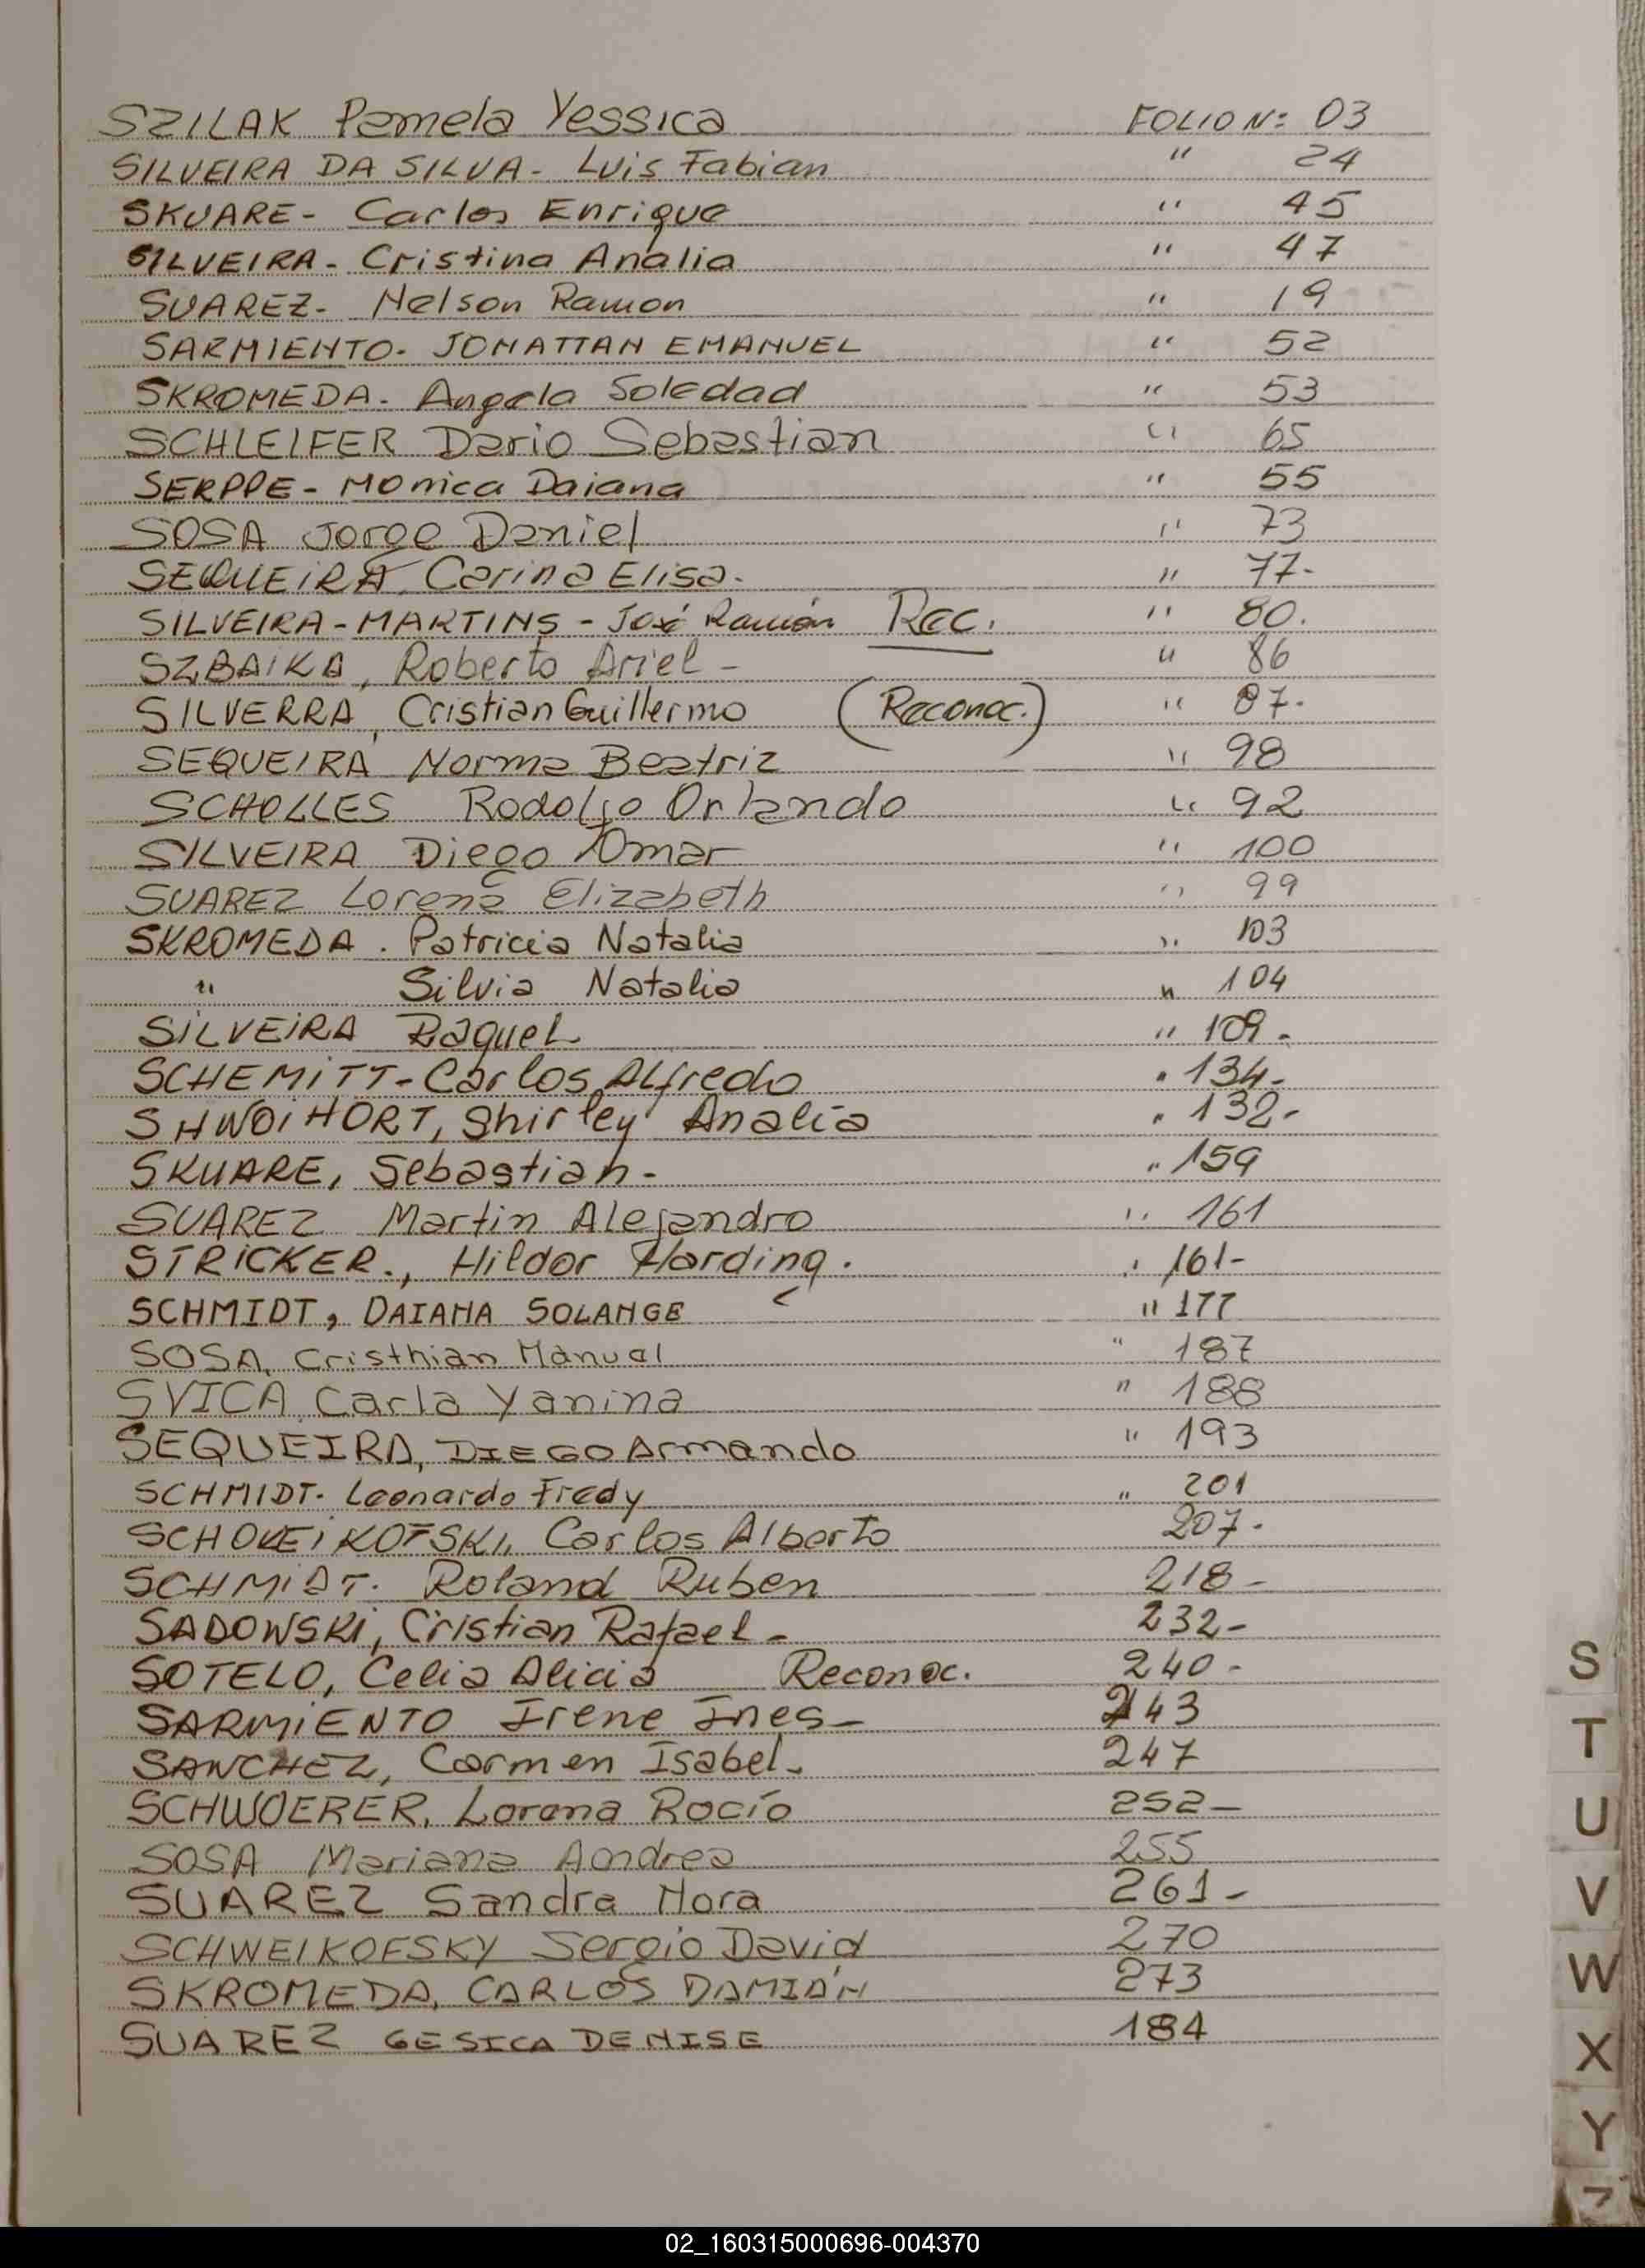 SZILAK Pamela Yessica FOLIO Nº 03
SILVEIRA DA SILVA- Luis Fabian " 24
SKUARE- Carlos Enrique " 45
SILVEIRA- Cristina Analia " 47
SUAREZ- Nelson Ramon " 19
SARMIENTO- JONATTAN EMANUEL " 52
SKROMEDA- Angela Soledad " 53
SCHLEIFER Dario Sebastian " 65
SERPPE- Monica Daiana " 55
SOSA Jorge Daniel " 73
SEQUEIRA, Carina Elisa. " 77-
SILVEIRA-MARTINS - José Ramón Rec. " 80.
SZBAIKA, Roberto Ariel - " 86
SILVERRA, Cristian Guillermo (Reconoc.) " 87-
SEQUEIRA Norma Beatriz " 98
SCHOLLES Rodolfo Orlando " 92
SILVEIRA Diego Omar " 100
SUAREZ Lorena Elizabeth " 99
SKROMEDA. Patricia Natalia " 103
" Silvia Natalia " 104
SILVEIRA Raquel " 109-
SCHEMITT- Carlos Alfredo " 134-
SHWOIHORT, Shirley Analia " 132-
SKUARE, Sebastian- " 159
SUAREZ Martin Alejandro " 161
STRICKER., Hildor Harding. " 161-
SCHMIDT, DAIANA SOLANGE " 177
SOSA, Cristhian Manuel " 187
SVICA Carla Yanina " 188
SEQUEIRA, DIEGO Armando " 193
SCHMIDT- Leonardo Fredy " 201
Carlos Alberto 207-
SCHMIDT. Roland Ruben 218-
SADOWSKI, Cristian Rafael- 232-
SOTELO, Celia Alicia Reconoc. 240-
SARMIENTO Irene Ines- 243
SANCHEZ, Carmen Isabel- 247
SCHWOERER, Lorena Rocío 252-
SOSA Mariana Andrea 255
SUAREZ Sandra Nora 261-
SCHWEIKOFSKY Sergio David 270
SKROMEDA, CARLOS DAMIÁN 273
SUAREZ GESICA DENISE 184
S
T
U
V
W
X
Y
Z
02_160315000696-004370